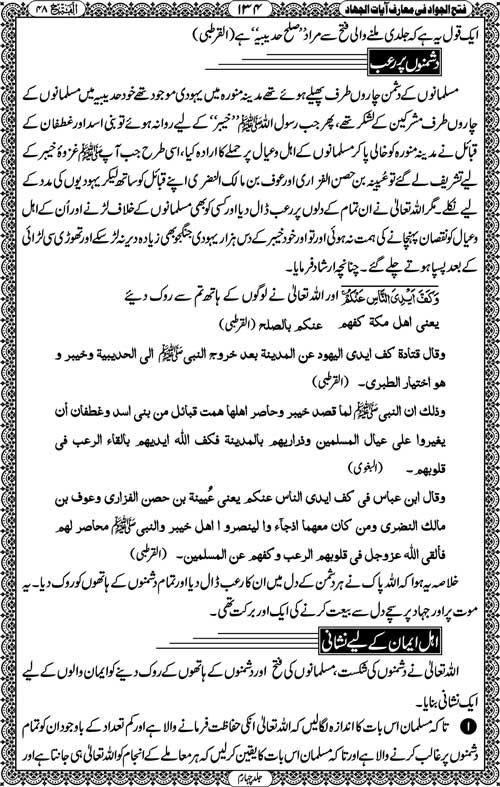 الفتح ۴۸
۱۳۴
فتح الجواد فی معارف آیات الجهاد
ایک قول یہ ہے کہ جلدی ملنے والی فتح سے مراد ”صلح حدیبیہ“ ہے (القرطبی)
دشمنوں پر رعب
مسلمانوں کے دشمن چاروں طرف پھیلے ہوئے تھے مدینہ منورہ میں یہودی موجود تھے خود حدیبیہ میں مسلمانوں کے
چاروں طرف مشرکین کے لشکر تھے، پھر جب رسول اللہ ﷺ ”خیبر“ کے لیے روانہ ہوئے تو بنی اسد اور غطفان کے
قبائل نے مدینہ منورہ کو خالی پا کر مسلمانوں کے اہل وعیال پر حملے کا ارادہ کیا، اسی طرح جب آپ ﷺ غزوۂ خیبر کے
لیے تشریف لے گئے تو عُیینہ بن حصن الفزاری اور عوف بن مالک النضری اپنے قبائل کو ساتھ لیکر یہودیوں کی مدد کے
لیے نکلے۔ مگر اللہ تعالیٰ نے ان تمام کے دلوں پر رعب ڈال دیا اور کسی کو بھی مسلمانوں کے خلاف لڑنے اور اُن کے اہل
وعیال کو نقصان پہنچانے کی ہمت نہ ہوئی اور تو اور خود خیبر کے دس ہزار یہودی جنگجو بھی زیادہ دیر نہ لڑ سکے اور تھوڑی سی لڑائی
کے بعد پسپا ہوتے چلے گئے۔ چنانچہ ارشاد فرمایا۔
وَكَفَّ اَيْدِيَ النَّاسِ عَنْكُمْ اور اللہ تعالیٰ نے لوگوں کے ہاتھ تم سے روک دیئے
یعنی اهل مکة کفهم عنکم بالصلح (القرطبی)
وقال قتادة کف ایدی الیهود عن المدینة بعد خروج النبی ﷺ الی الحدیبیة وخیبر و
هو اختیار الطبری۔ (القرطبی)
وذلك ان النبی ﷺ لما قصد خیبر وحاصر اهلها همت قبائل من بنی اسد وغطفان أن
یغیروا علی عیال المسلمین وذراریهم بالمدینة فکف الله ایدیهم بالقاء الرعب فی
قلوبهم۔ (البغوی)
وقال ابن عباس فی کف ایدی الناس عنکم یعنی عُیینة بن حصن الفزاری وعوف بن
مالك النضری ومن کان معهما اذجآء وا لینصروا ا اهل خیبر والنبی ﷺ محاصر لهم
فألقی الله عزوجل فی قلوبهم الرعب وکفهم عن المسلمین۔ (القرطبی)
خلاصہ یہ ہوا کہ اللہ پاک نے ہر دشمن کے دل میں ان کا رعب ڈال دیا اور تمام دشمنوں کے ہاتھوں کو روک دیا۔ یہ
موت پر اور جہاد پر سچے دل سے بیعت کرنے کی ایک اور برکت تھی۔
اہل ایمان کے لیے نشانی
اللہ تعالیٰ نے دشمنوں کی شکست، مسلمانوں کی فتح اور دشمنوں کے ہاتھوں کے روک دینے کو ایمان والوں کے لیے
ایک نشانی بنایا۔
۱ تا کہ مسلمان اس بات کا اندازہ لگالیں کہ اللہ تعالیٰ انکی حفاظت فرمانے والا ہے اور کم تعداد کے باوجود ان کو تمام
دشمنوں پر غالب کرنے والا ہے اور تا کہ مسلمان اس بات کا یقین کرلیں کہ ہر معاملے کے انجام کو اللہ تعالیٰ ہی جانتا ہے اور
جلد چہارم